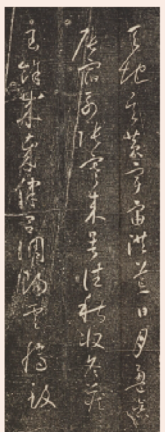 天地玄黃宇宙洪荒日月盈昃
辰宿列張寒來暑往秋收冬藏
閏餘成歲律呂調陽雲騰致